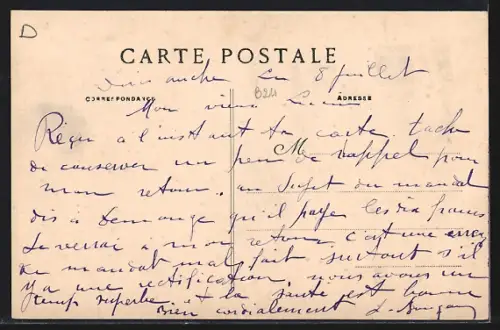 D
CARTE POSTALE
Dimanche le 8 juillet
B211
CORRESPONDANCE
ADRESSE
Mon vieux Lucien
Reçu à l'instant ta carte. tache
M
de conserver un peu de rappel pour
mon retour. au sujet du mandat
dis à Demange qu'il paye les dix francs
Je verrai à mon retour. c'est une
de mandat mal fait surtout s'il
y a une rectification. nous avons un
temps superbe. et la santé est bonne
Bien cordialement